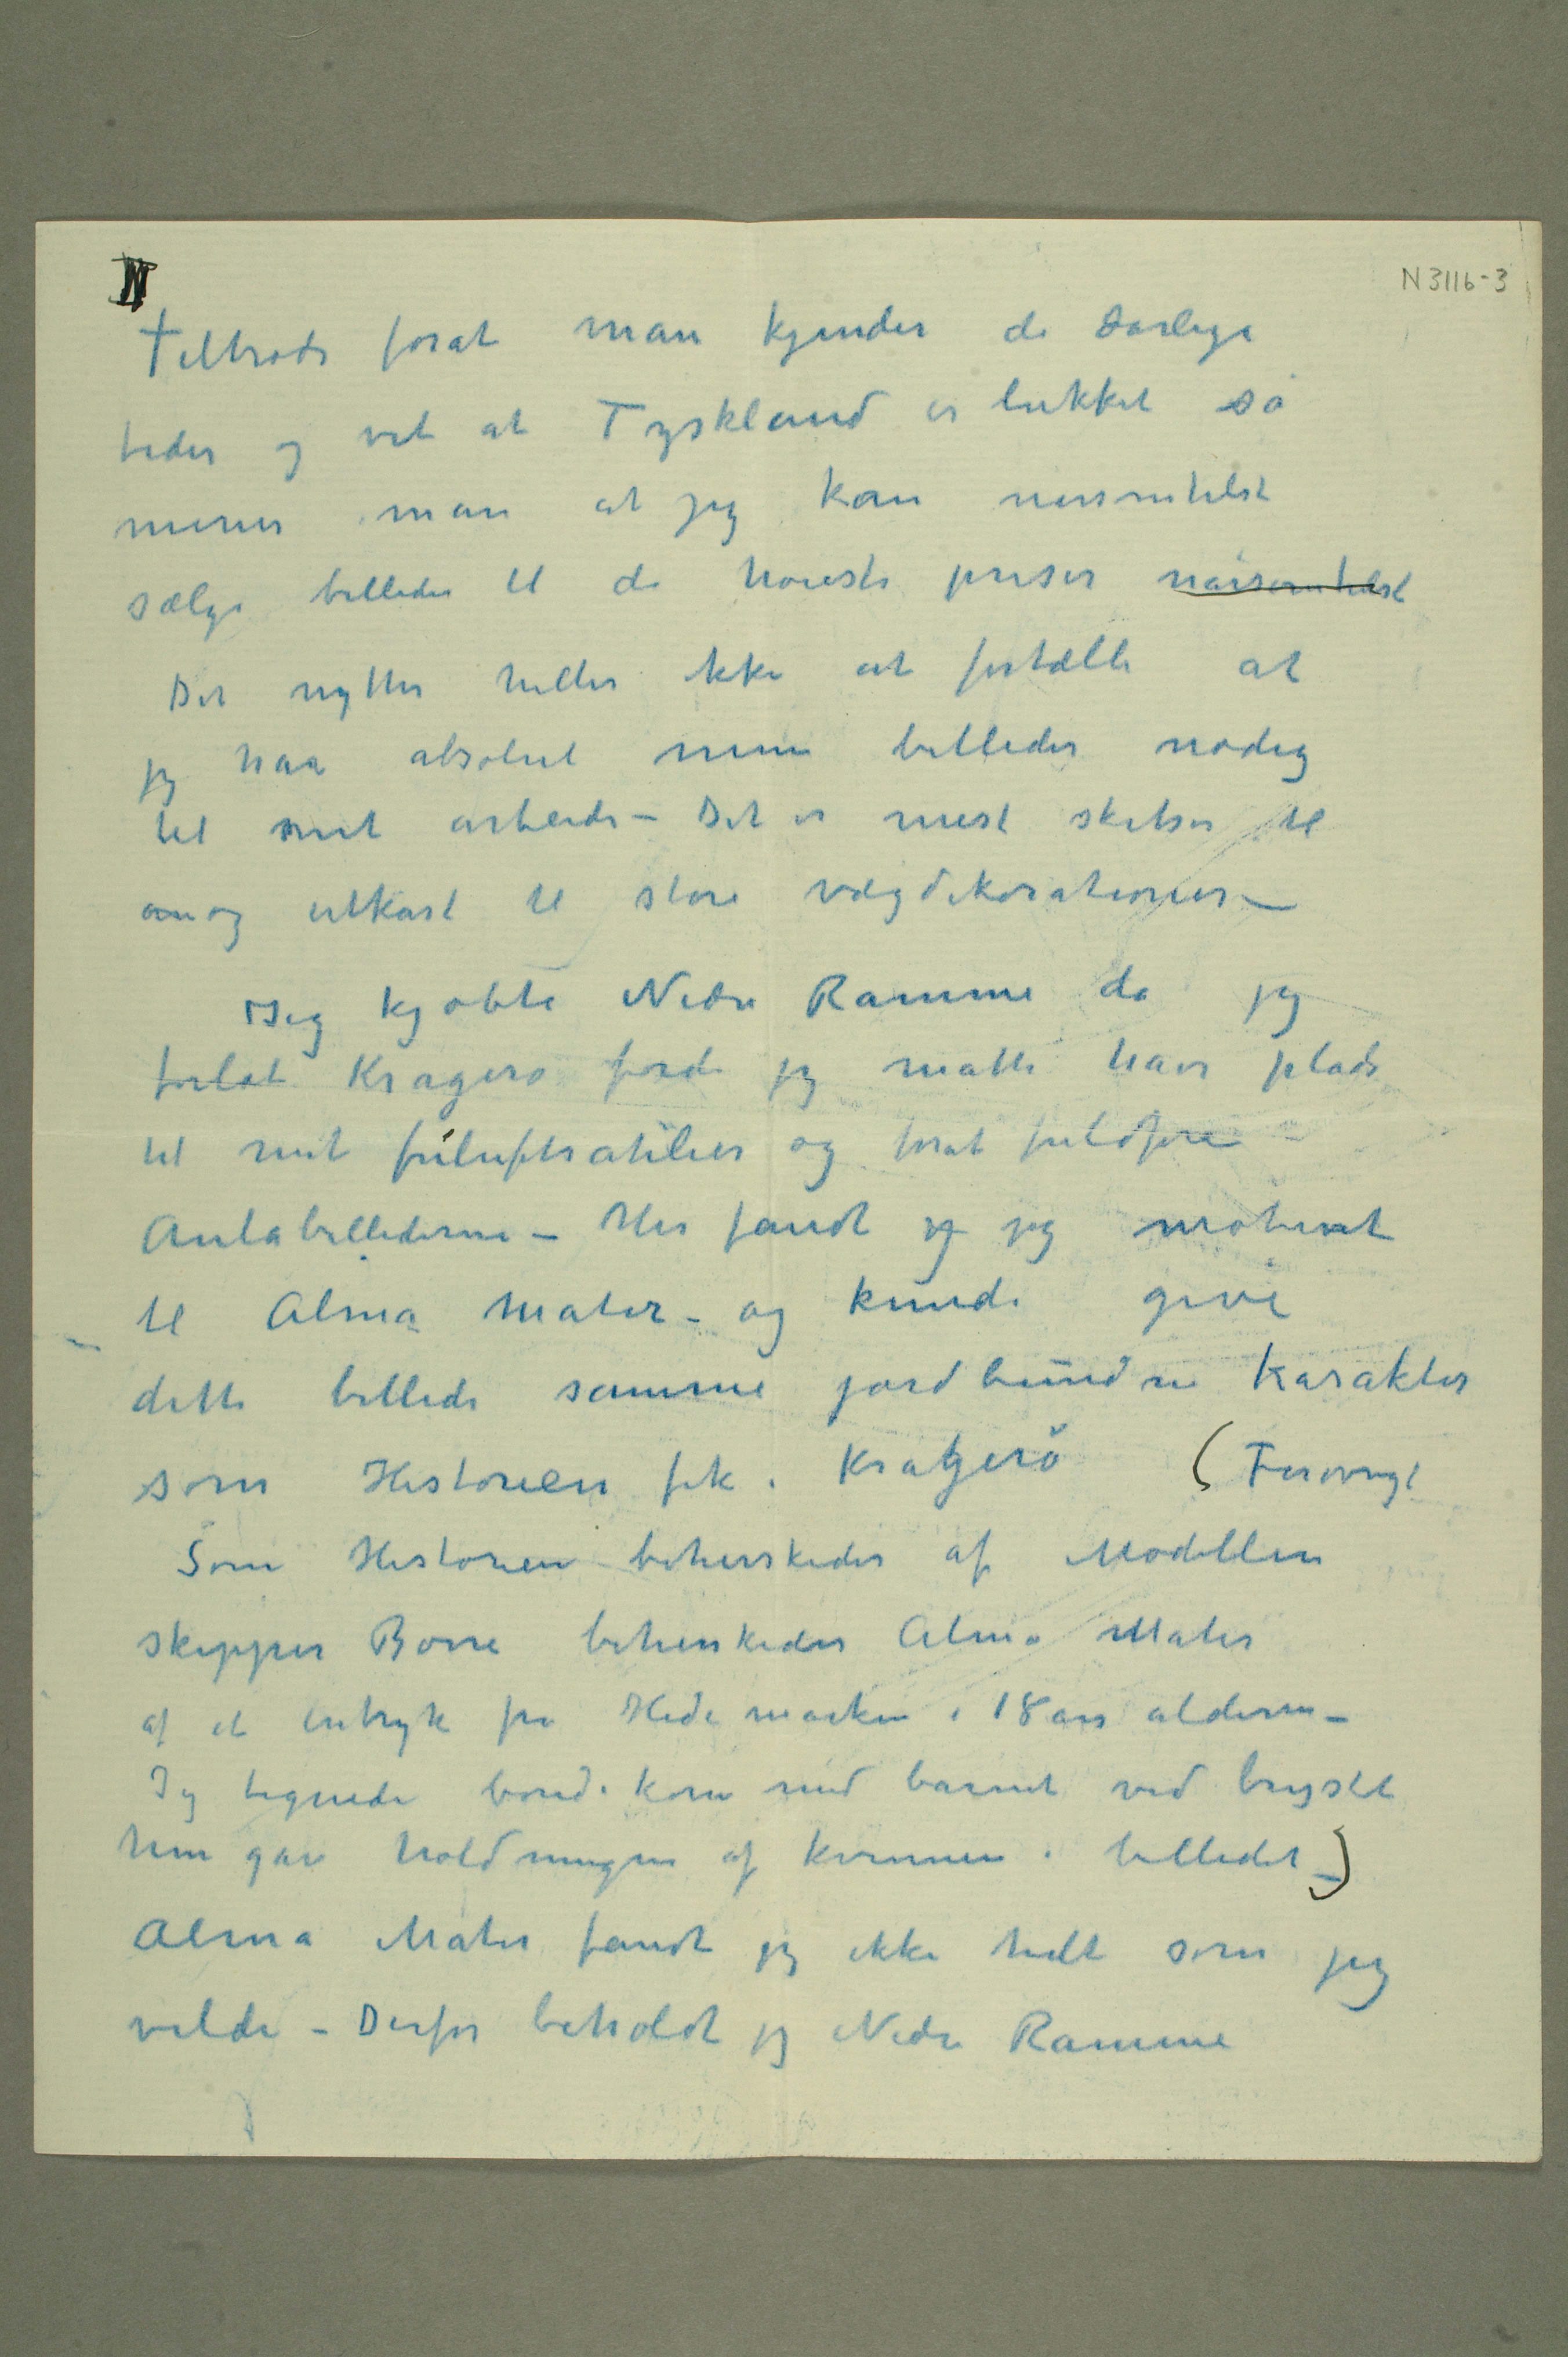 N 3116-3
Tiltrods forat man kjender de darlige
tider og vet at Tyskland er lukket så
mener man at jeg kan narsomhelst
sælge billeder til de høieste priser nårsomhelst
Det nytter heller ikke at fortælle at
jeg har absolut mine billeder nødig
til mit arbeide – Det er mest skitser til
og utkast til store vægdekorationer –
Jeg kjøbte Nedre Ramme da jeg
forlot Kragerø fordi jeg matte have plads
til mit friluftsatelier og forat fuldføre
Aulabillederne – Her fandt jeg jeg motivet
til Alma Mater – og kunde give
dette billede samme jordbundne karakter
som Historien fik i Kragerø (Forøvrigt
Som Historien beherskedes af Modellen
skipper Børre beherskedes Alma Mater
af et intryk fra Hedemarken i 18 ars alderen –
Jeg tegnede bondekone med barnet ved brystet
hun gav holdningen af kvinnen i billedet –)
Alma Mater fandt jeg ikke helt som jeg
vilde – Derfor beholdt jeg Nedre Ramme